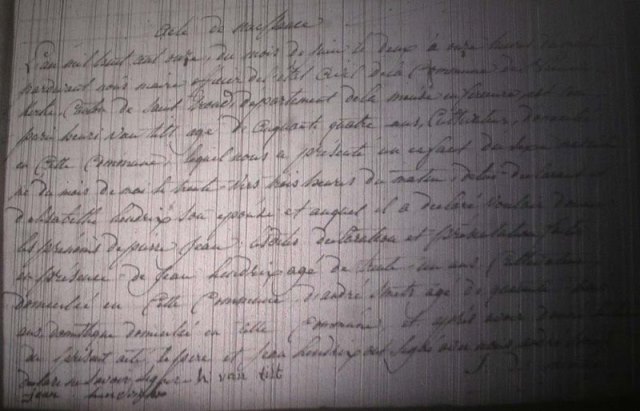 acte de naissance
L'an mil huit cent onze, du mois de juin le deux à onze heures
pardevant nous maire officier de l'état civil de la Commune de
Canton de Saint Trond, département de la meuse inférieure est com
paru henri van tilt agé de Cinquante quatre ans, Cultivateur, domicilié
en Cette Commune, lequel nous a présenté un enfant du Sexe masculin
né du mois de mai le trente vers trois heures du matin, de lui déclarant et
d'elisabeth hendrix Son epouse et auquel il a déclaré vouloir donner
les prenoms de pierre Jean, déclaration et présentation faite
en présence de Jean hendrix agé de trente un ans, Cultivateur
domicilié en Cette Commune, d'andré Smets agé de
ans, domestique domicilié en Cette Commune, et après avoir
du présent acte, le pere et Jean hendrix ont signé avec nous
declare ne savoir signer h van tilt
Jean hendrix